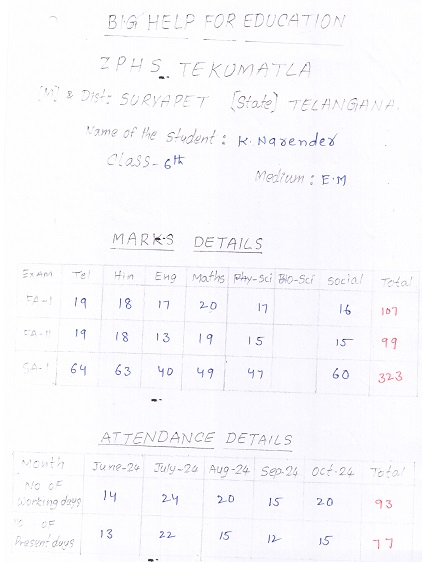 BIG HELP FOR EDUCATION
ZPHS TEKUMATLA
[M] & Dist: SURYAPET [State] TELANGANA.
Name of the Student: K. Narender
Class- 6th
Medium: E.M
MARKS DETAILS
Exam Tel Hin Eng Maths Phy-Sci Bio-Sci Social Total
FA-I 19 18 17 20 17 16 107
FA-II 19 18 13 19 15 15 99
SA-I 64 63 40 49 47 60 323
ATTENDANCE DETAILS
Month June-24 July-24 Aug-24 Sep-24 Oct-24 Total
No OF
Working days 14 24 20 15 20 93
OF
Present days 13 22 15 12 15 77